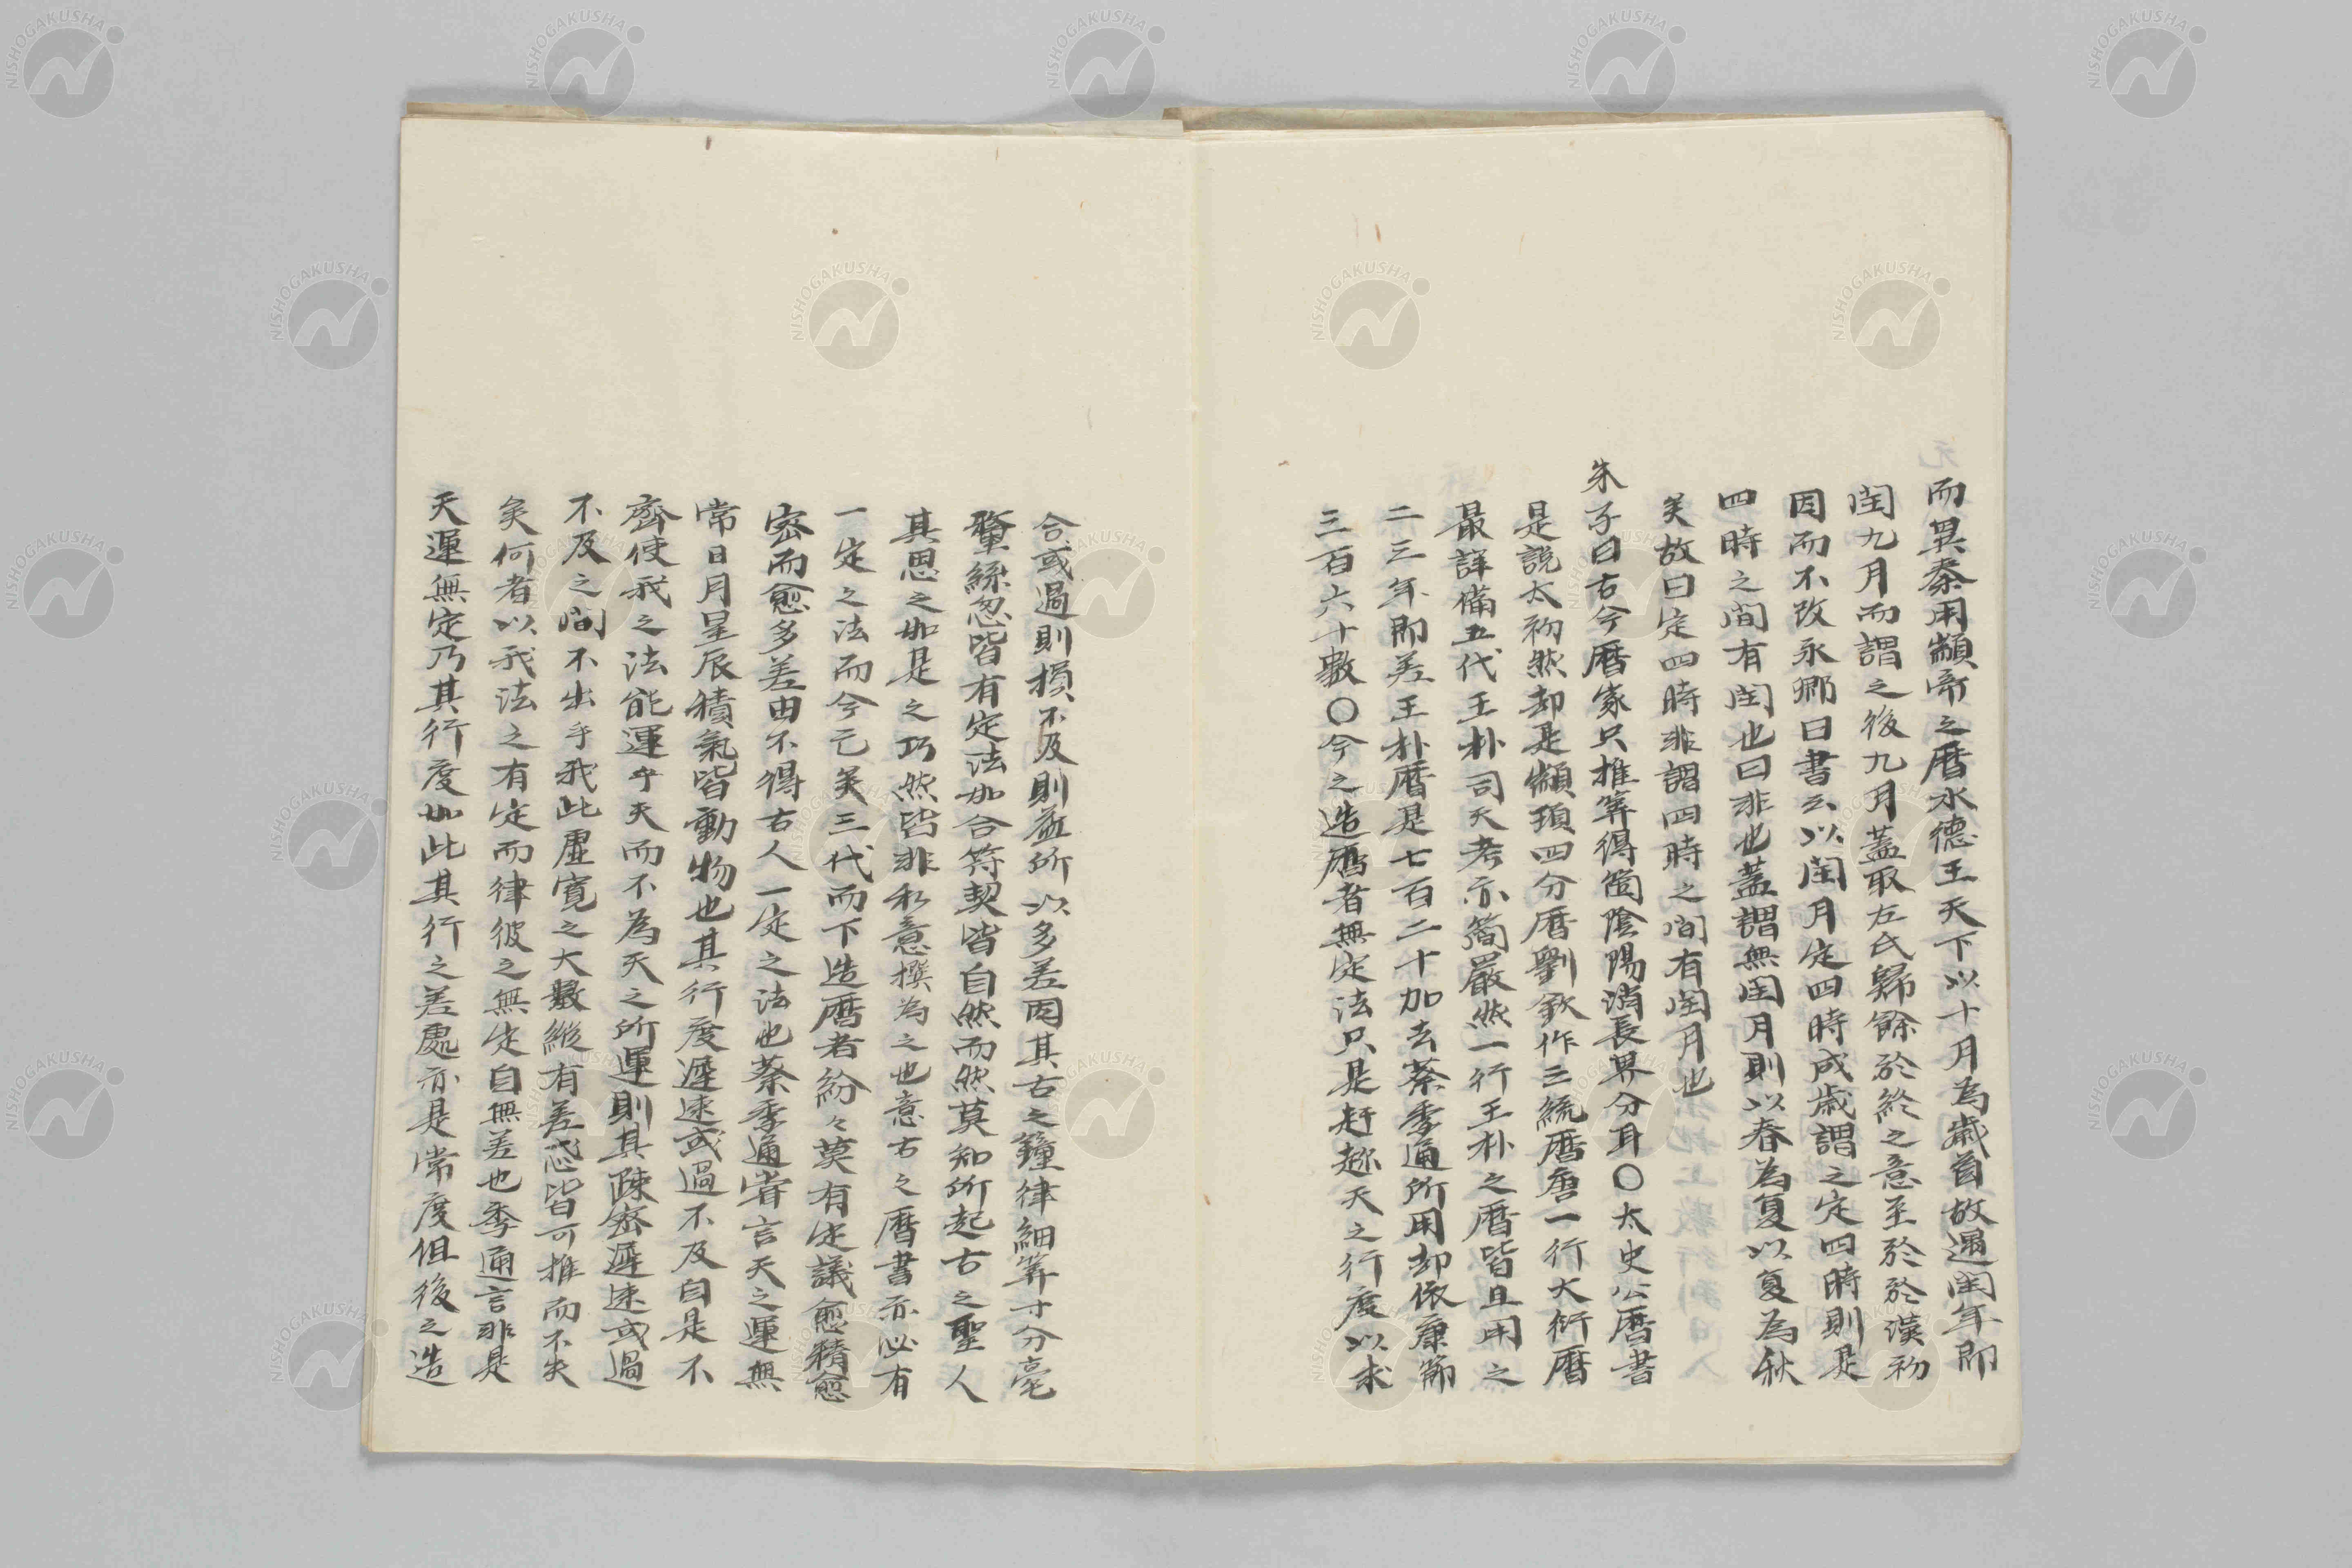 而異秦用顓帝之暦水德王天下以十月為歳首故遇閏年即
閏九月而謂之後九月蓋取左氏歸餘於終之意至於於漢初
因而不改永卿曰書云以閏月定四時成歳謂之定四時則是
四時之間有閏也曰非也蓋謂無閏月則以春為夏以夏為秋
矣故曰定四時非謂四時之間有閏月也
朱子曰古今暦家只推筭得箇陰陽消長界分耳〇太史公暦書
是説太初然却是顓頊四分暦劉歆作三統暦唐一行大衍暦
最詳備五代王朴司天考亦簡嚴然一行王朴之暦皆且用之
二三年即差王朴暦是七百二十加去蔡季通所用却依康節
三百六十數〇今之造暦者無定法只是赶趂天之行度以求
合或過則損不及則益所以多差因其古之鐘律細筭寸分毫
釐絲忽皆有定法如合符契皆自然而然莫知所起古之聖人
其思之如是之巧然皆非私意撰為之也意古之暦書亦必有
一定之法而今亡矣三代而下造暦者紛々莫有定議愈精愈
密而愈多差由不得古人一定之法也蔡季通嘗言天之運無
常日月星辰積氣皆動物也其行度遲速或過不及自是不
齊使我之法能運乎天而不為天之所運則其疎密遲速或過
不及之間不出乎我此虛寬之大數縱有差忒皆可推而不失
矣何者以我法之有定而律彼之無定自無差也季通言非是
天運無定乃其行度如此其行之差處亦是常度但後之造
NISHOGAKUSHA